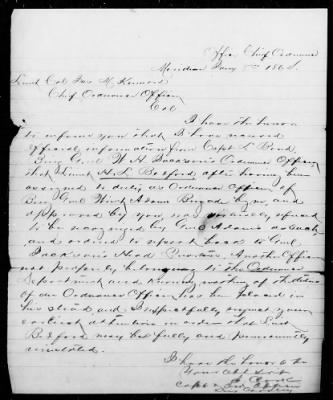 Office Chief Ordnance
Meridian Jany 8th 1864
Lieut Col Jno M Kennard
Chief Ordnance Officer
Col
I have the honor
to inform you that I have received
official information from Capt L Bond
Brig Genl W H Jackson's Ordnance Officer
that Lieut H L Bedford after having been
assigned to duty as Ordnance Officer of
Brig Genl Wirt Adams Brigade and
approved by you was refused
to be recognized by Genl Adams as such
and ordered to report back to Genl
Jackson's Head Quarters. Another Officer
not properly belonging to the Ordnance
Department and knowing nothing of the duties
of an Ordnance Officer has been placed in
his stead and I respectfully request your
earliest attention in order that Lieut
Bedford may be fully and permanently
reinstated.
I have the honor to be
Your Obt Svt
Capt